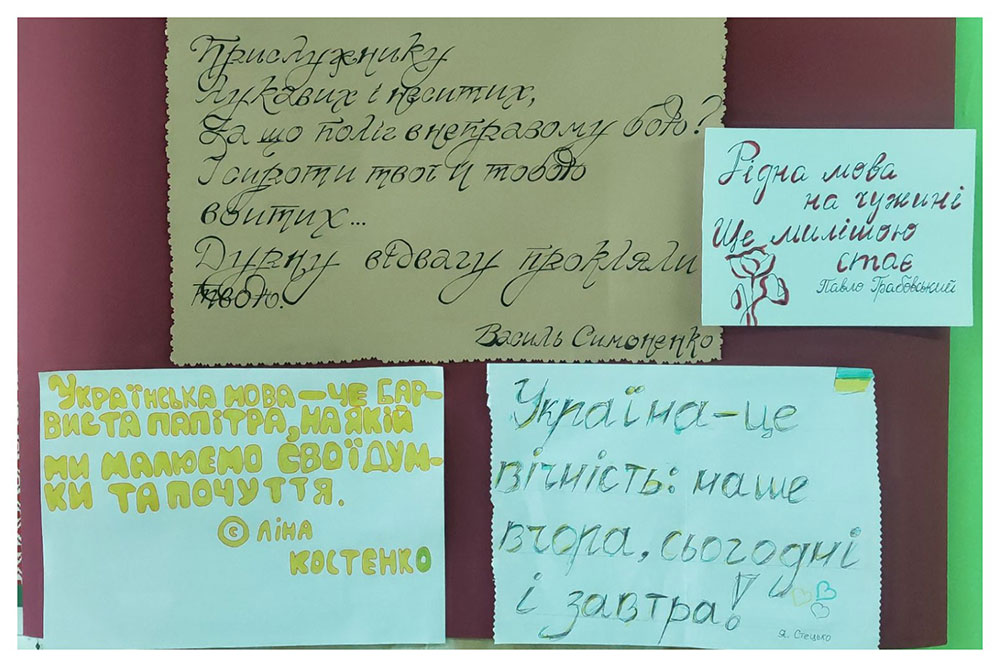 Прислужнику
лукавих і неситих,
За що поліг в неправому бою?
І сироти твої й тобою
вбитих...
Дурну відвагу прокляли
твою.
Василь Симоненко
Рідна мова
на чужині
Ще милішою
стає
Павло Грабовський
Українська мова – це бар-
виста палітра, на якій
ми малюємо свої дум-
ки та почуття.
© Ліна
Костенко
Україна – це
вічність: наше
вчора, сьогодні
і завтра!
Я. Стецько